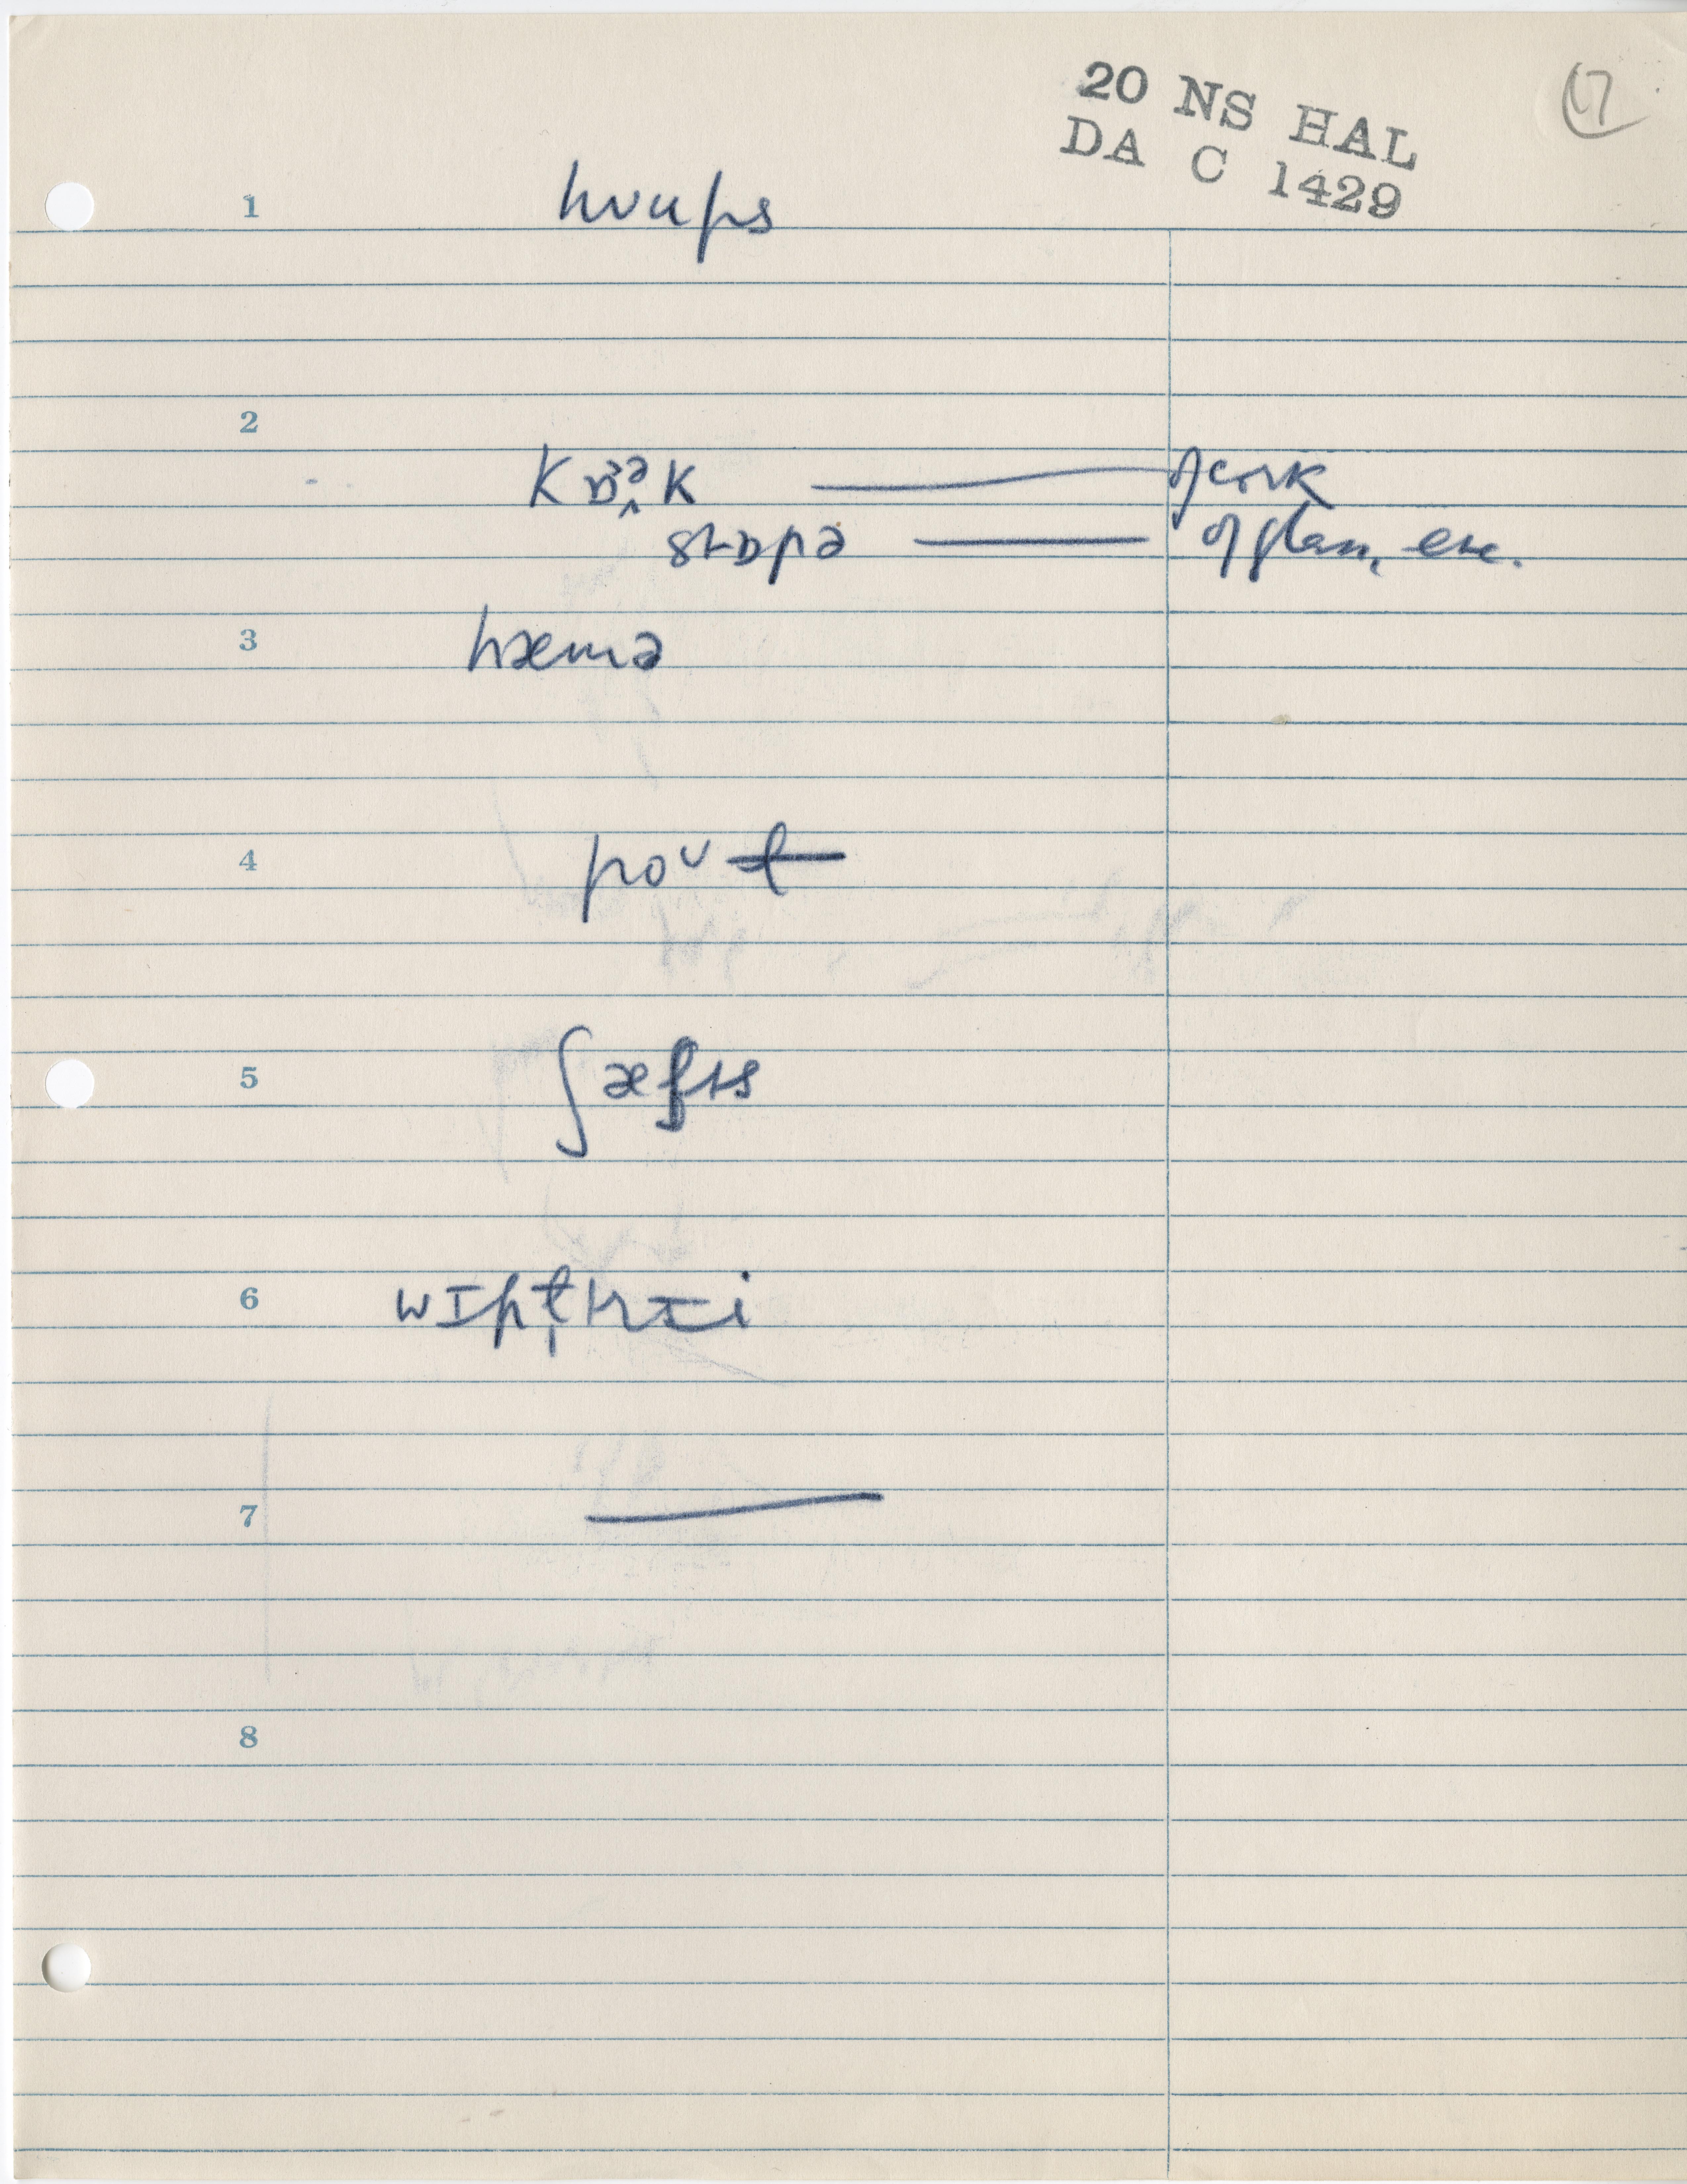 20 NS HAL
DA C 1429
17
1 hʊups
2
kɒ̌ᵊ̭k — of cork
stɒpə — of glass, etc.
3 hæmə
4 poᵘɫ
5 ʃæfts
6 wɪpl̩trɪi
7 —
8